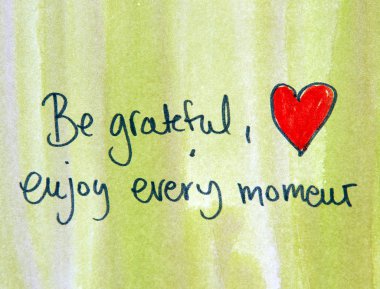 Be grateful,
enjoy every moment